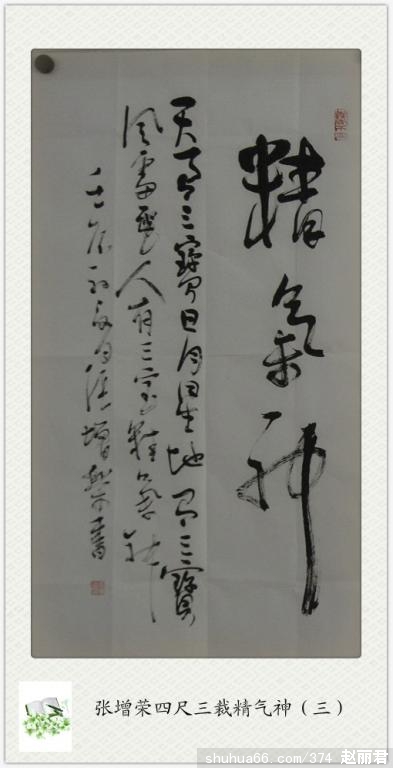 精氣神
天有三寶日月星地有三寶
風雷人有三宝精氣神
壬辰張增榮書
张增荣四尺三裁精气神（三）
shuhua66.com/374 赵丽君